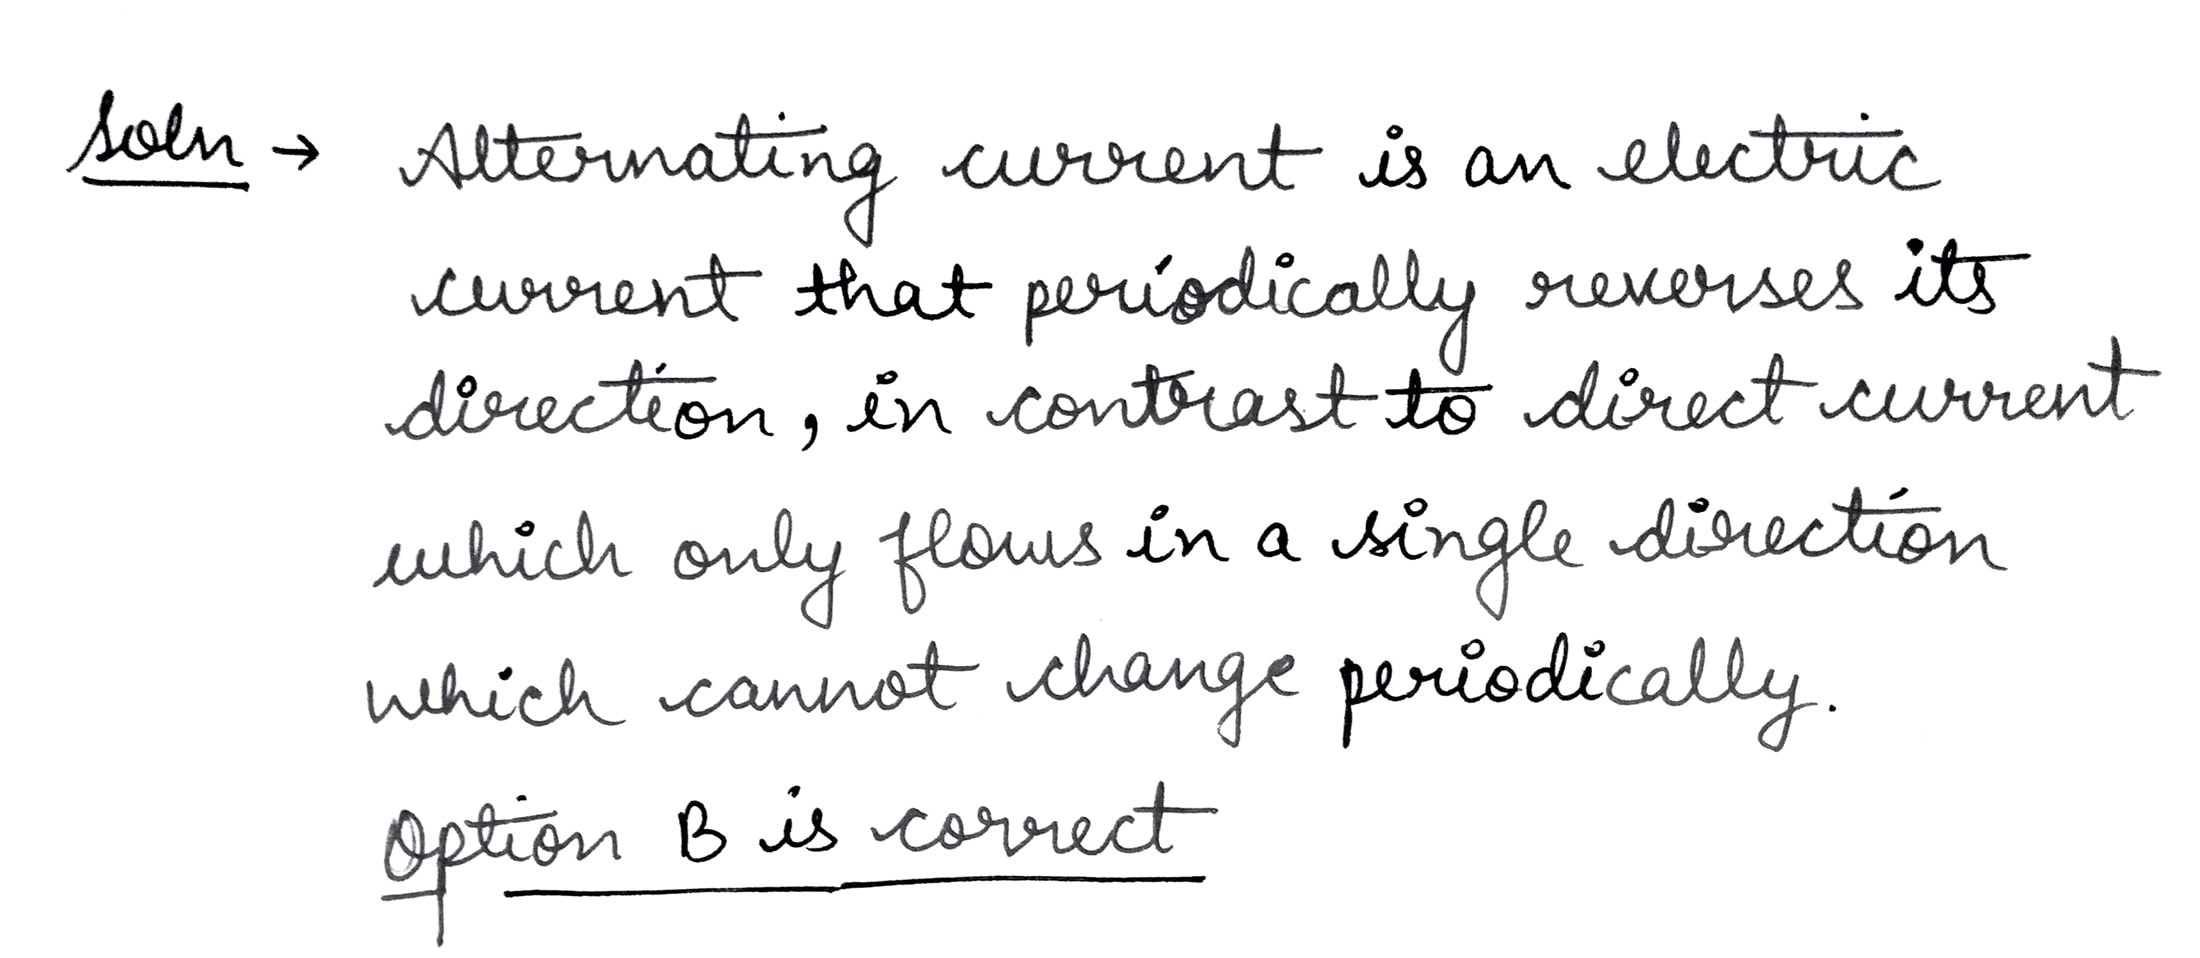 Soln → Alternating current is an electric
current that periodically reverses its
direction, in contrast to direct current
which only flows in a single direction
which cannot change periodically.
Option B is correct